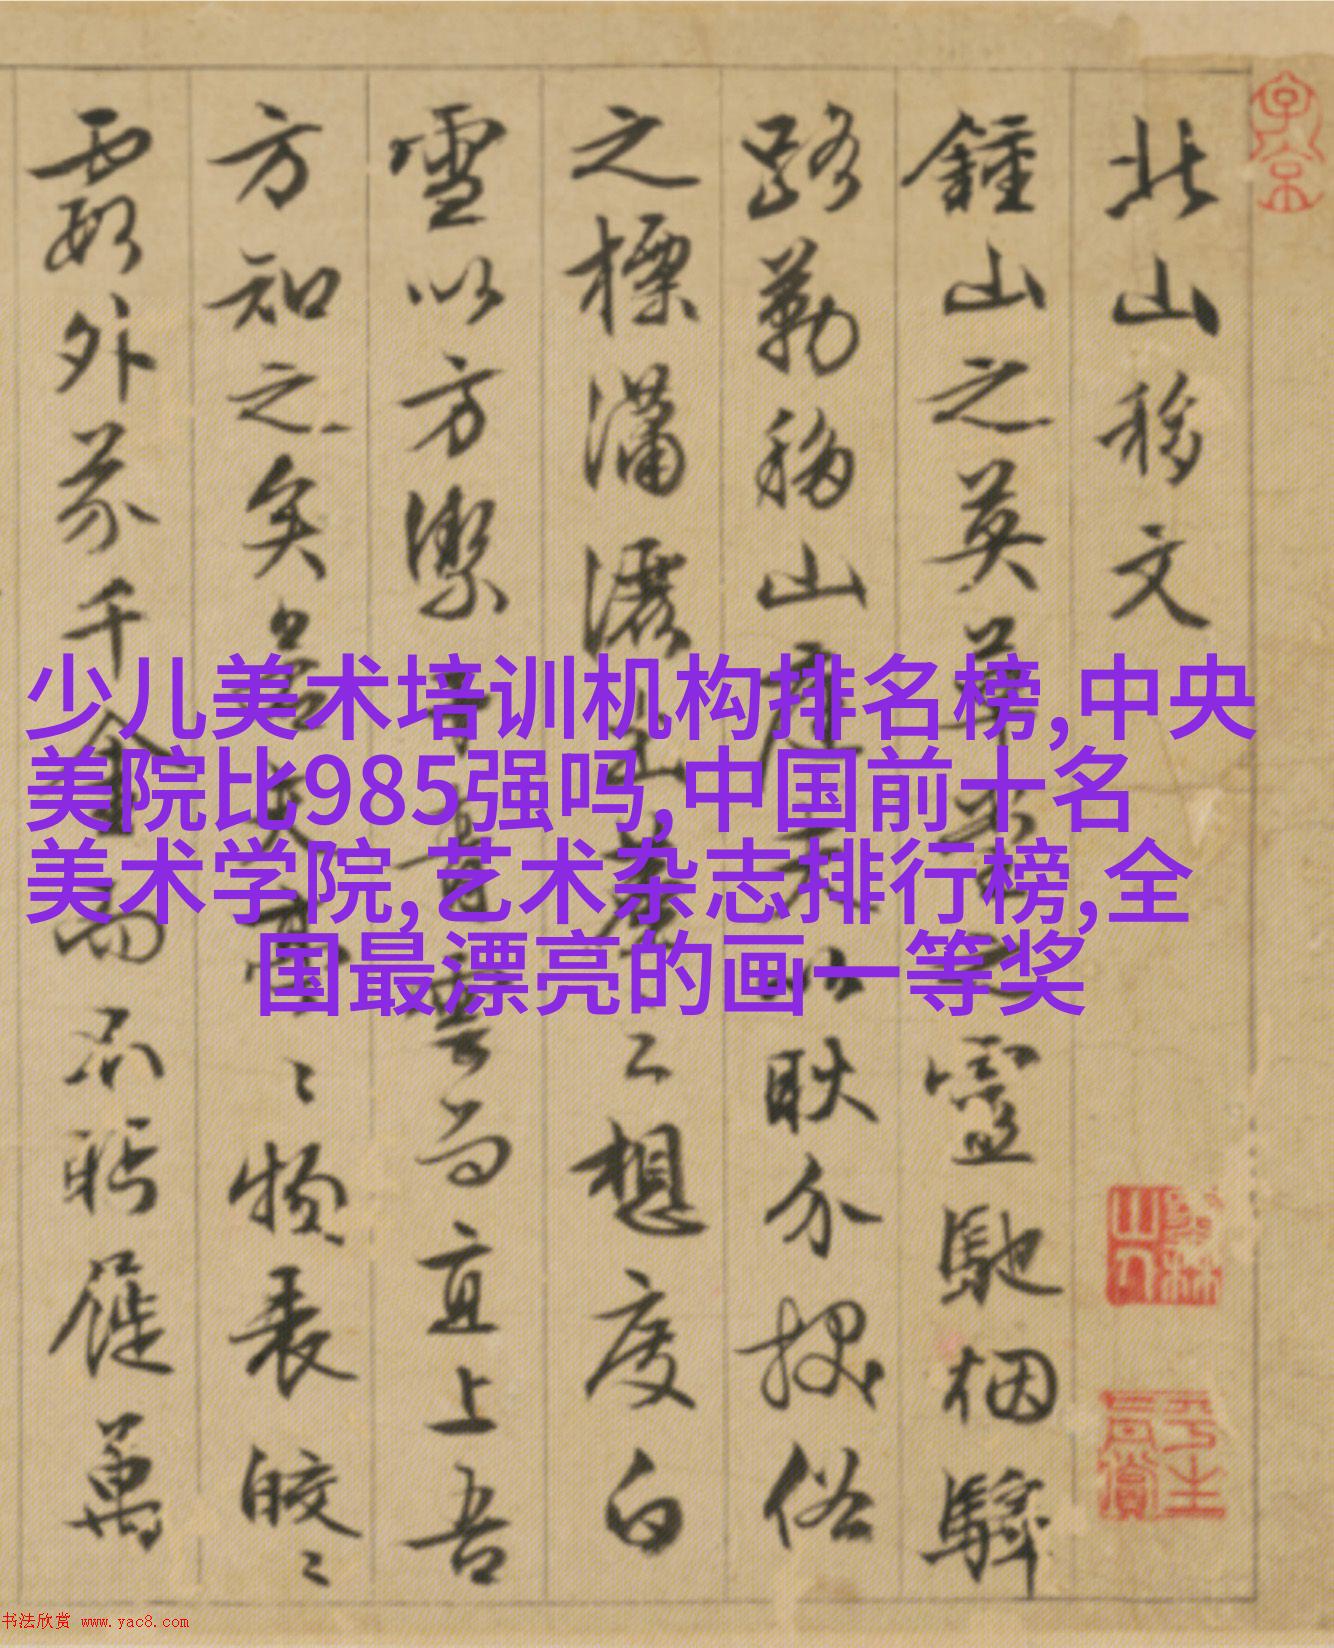 北山移文
鍾山之英草堂之靈馳烟驛
路勒移山庭夫以耿介拔俗
之標瀟灑出塵之想度白
雪以方潔干青雲而直上吾
方知之矣若其亭〻物表皎〻
霞外芥千金而不眄屣萬
少儿美术培训机构排名榜,中央
美院比985强吗,中国前十名
美术学院,艺术杂志排行榜,全
国最漂亮的画一等奖
书法欣赏 www.yac8.com